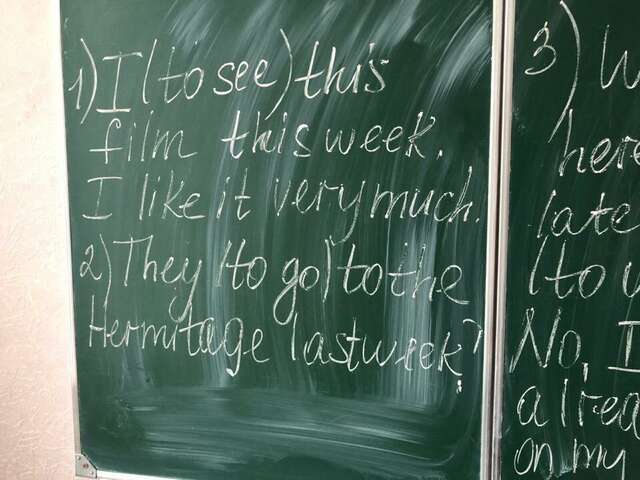 1) I (to see) this
film this week.
I like it very much.
2) They (to go) to the
Hermitage last week?
3)
here
late
(to
No, I
alrea
on my